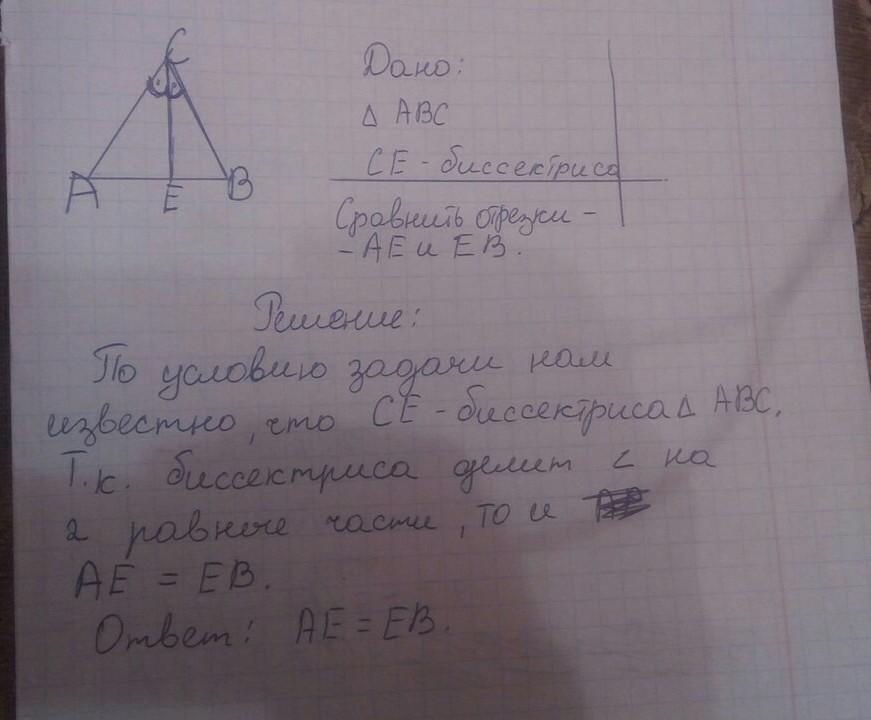 C
A
E
B
Дано:
Δ ABC
CE - биссектриса
Сравнить отрезки -
- AE и EB.
Решение:
По условию задачи нам
известно, что CE - биссектриса Δ ABC.
Т.к. биссектриса делит ∠ на
2 равные части, то и
AE = EB.
Ответ: AE = EB.